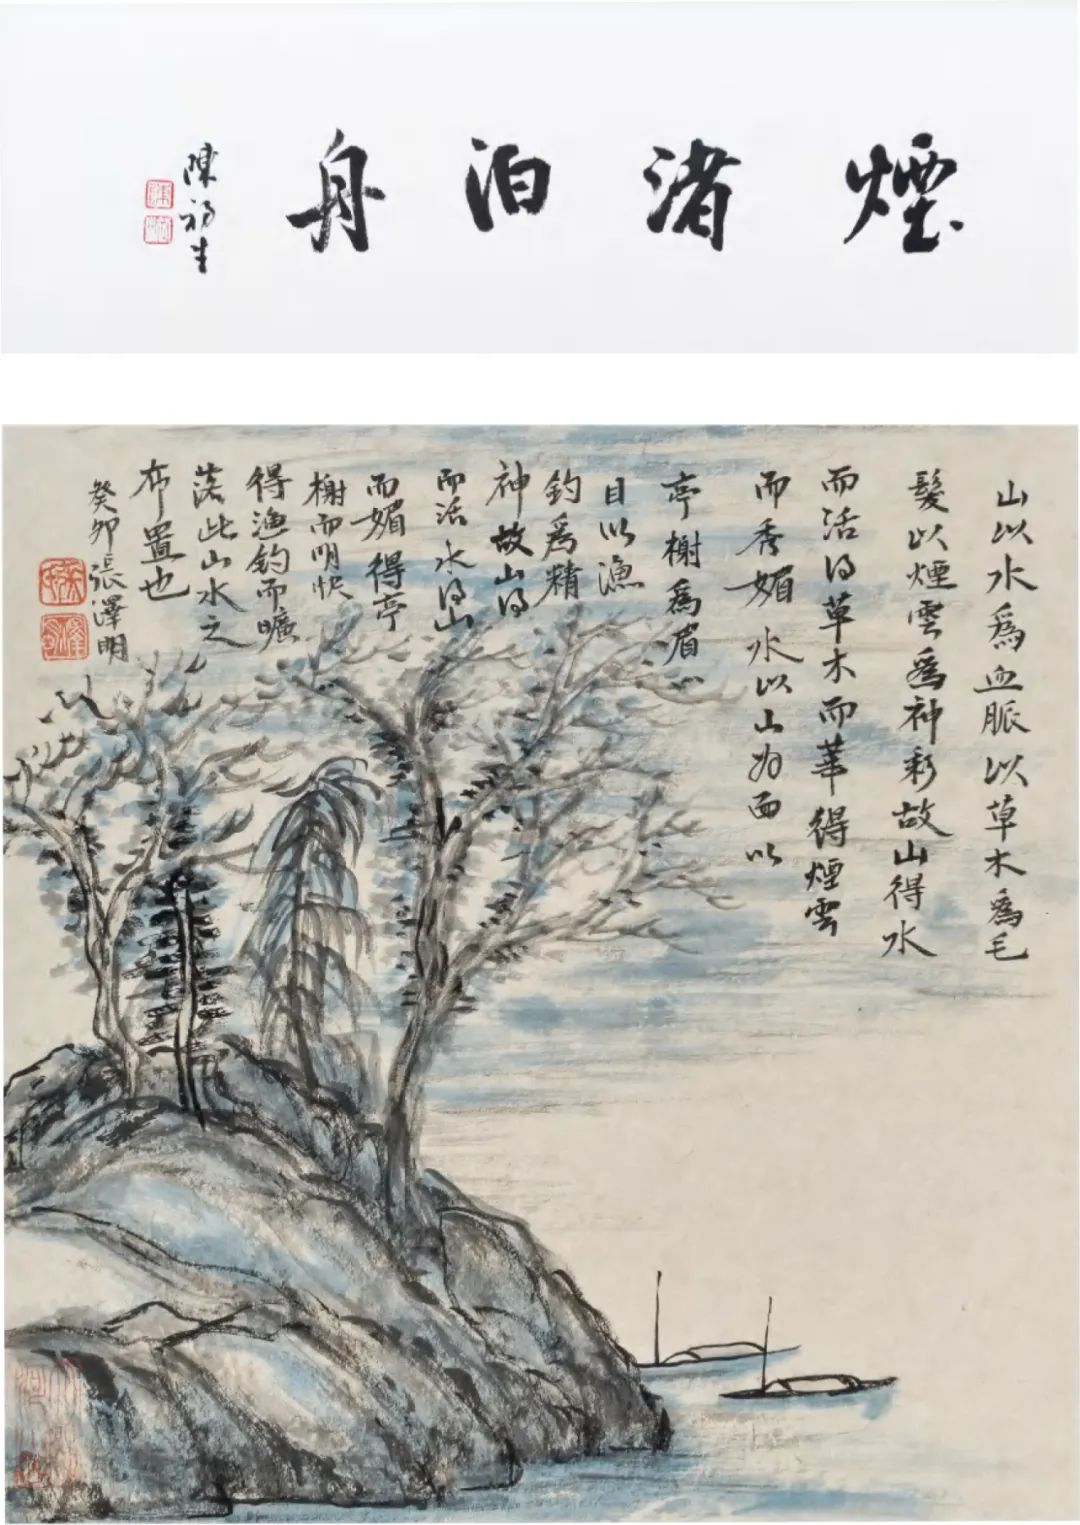 煙渚泊舟
陳初生
山以水爲血脈以草木爲毛
髮以煙雲爲神彩故山得水
而活得草木而華得煙雲
而秀媚水以山为面以
亭榭爲眉
目以漁
釣爲精
神故山得
而活水得山
而媚得亭
榭而明快
得漁釣而曠
落此山水之
布置也
癸卯張澤明